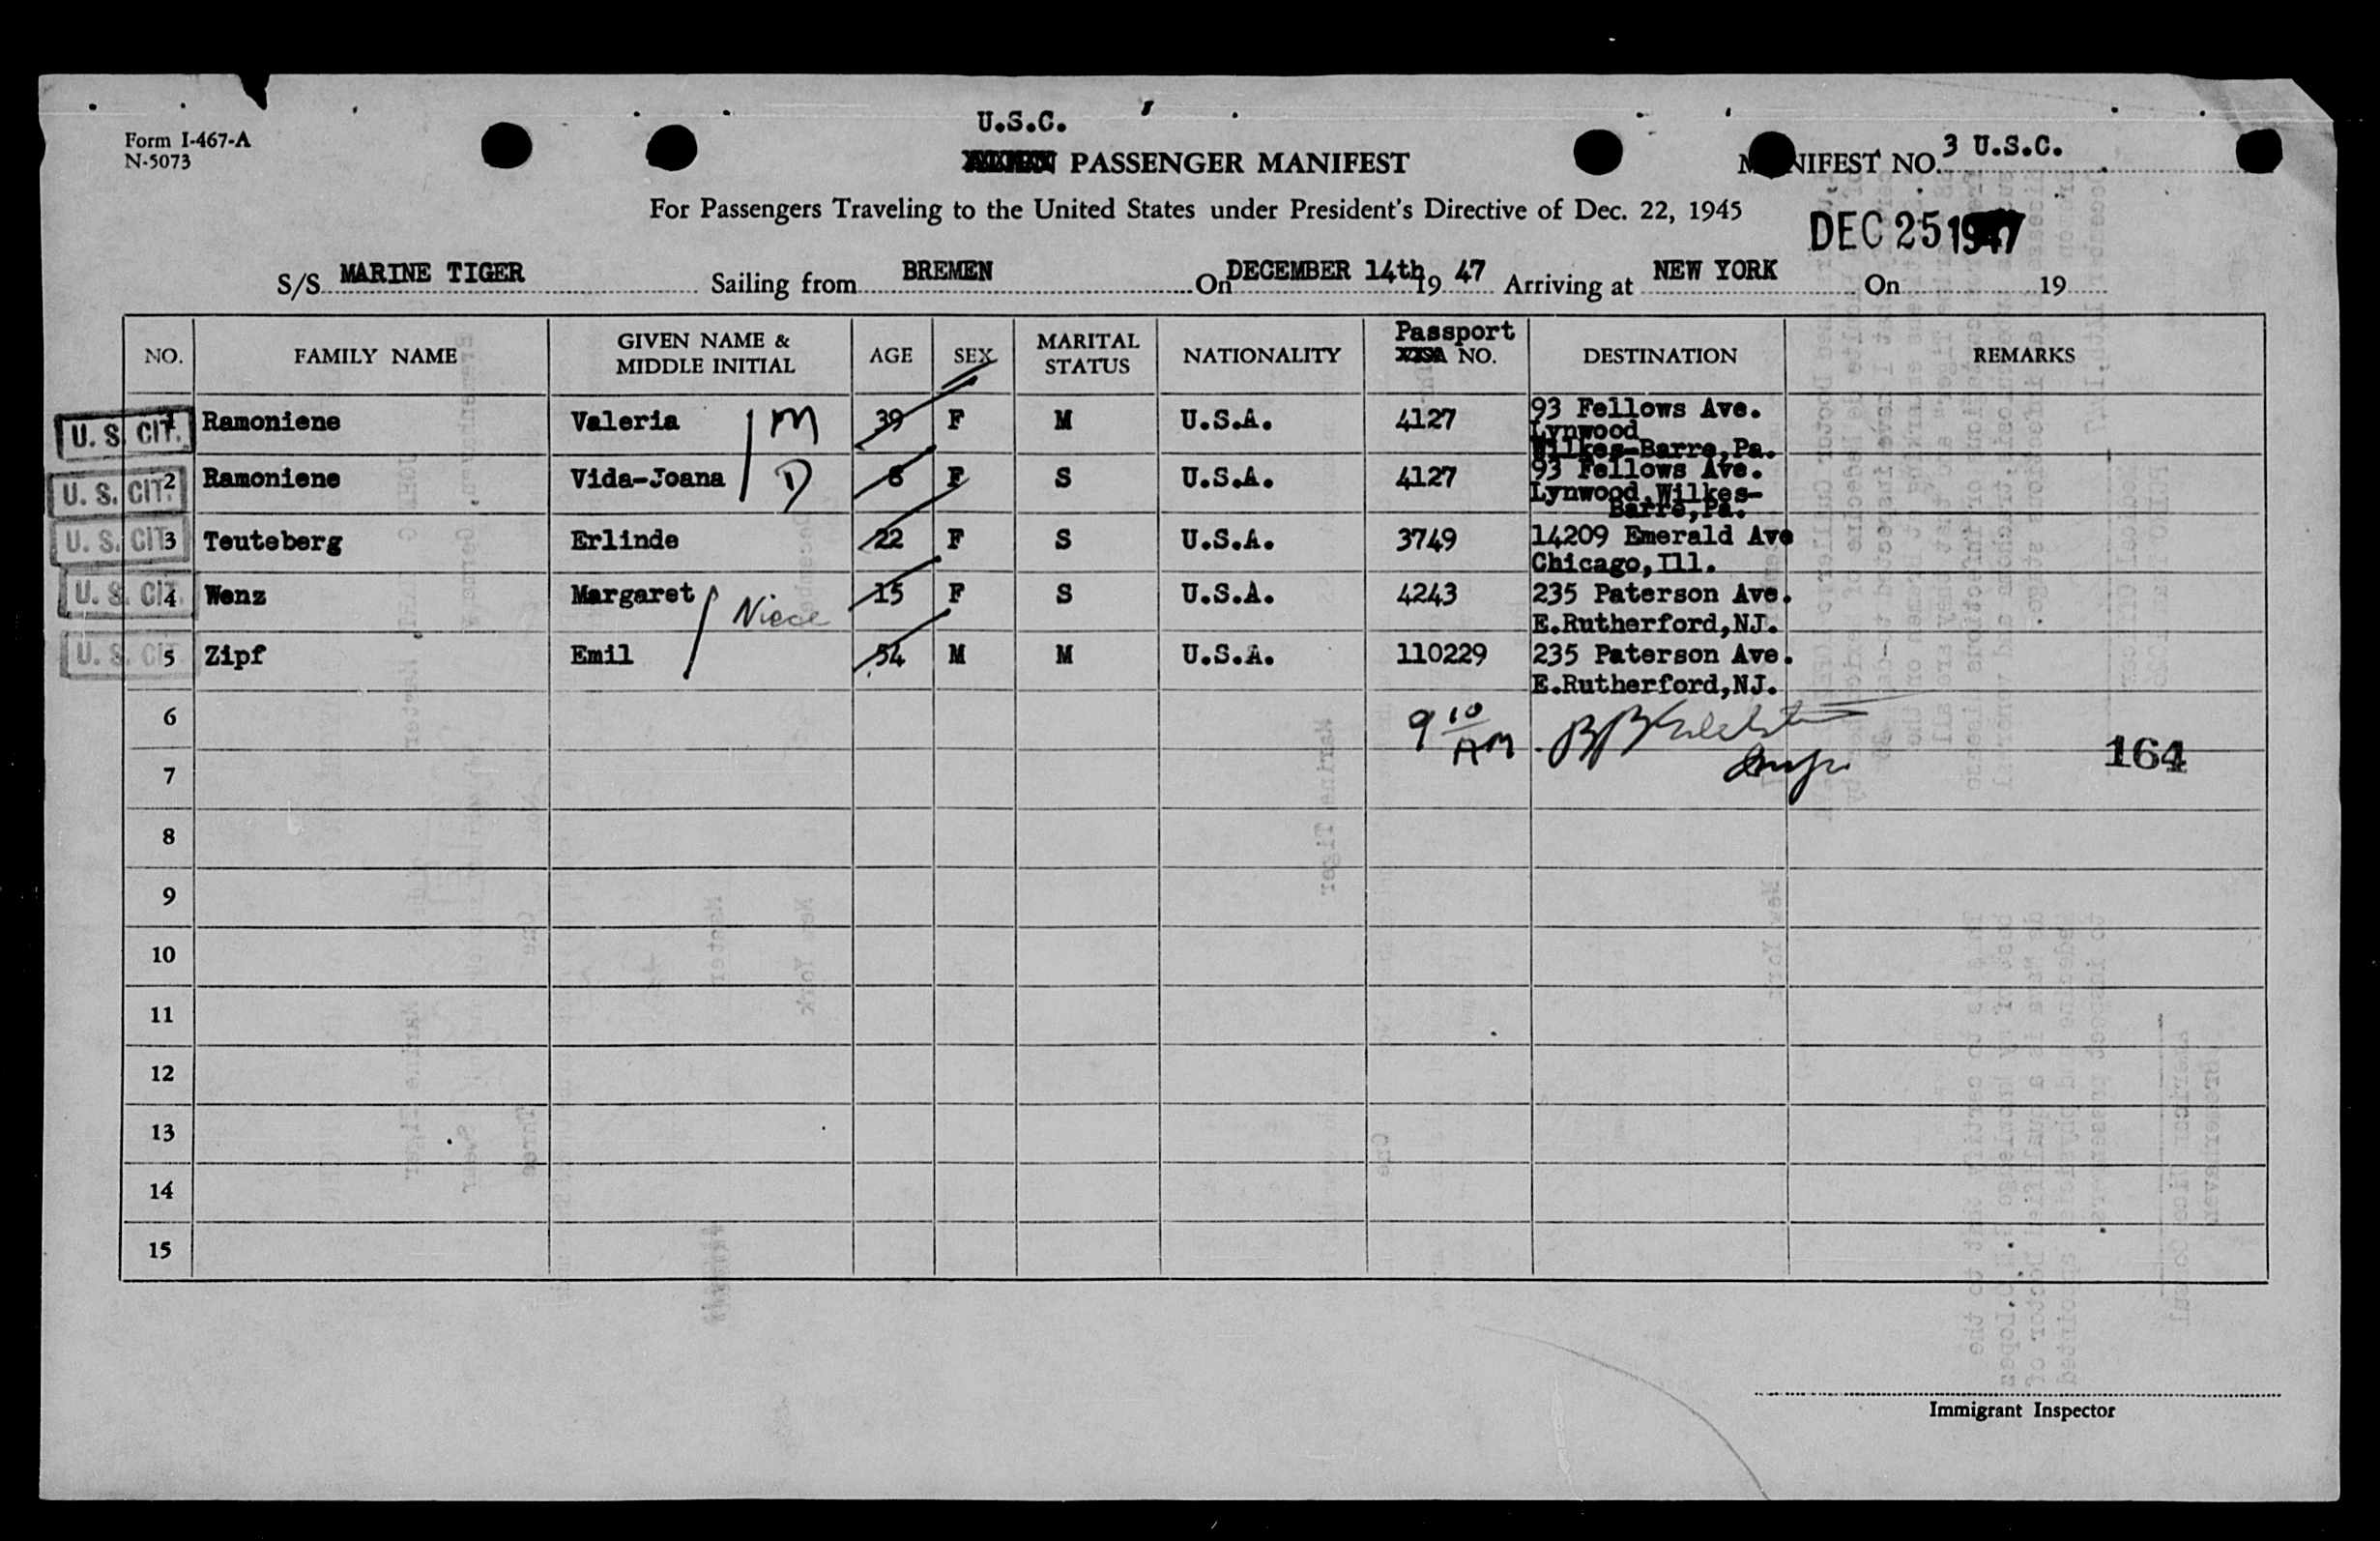 U.S.C.
Form I-467-A
N-5073
PASSENGER MANIFEST
MANIFEST NO. 3 U.S.C.
For Passengers Traveling to the United States under President's Directive of Dec. 22, 1945
DEC 25 1947
S/S MARINE TIGER Sailing from BREMEN On DECEMBER 14th 19 47 Arriving at NEW YORK On 19
NO. FAMILY NAME GIVEN NAME & MIDDLE INITIAL AGE SEX MARITAL STATUS NATIONALITY Passport NO. DESTINATION REMARKS
U. S. CIT. 1 Ramoniene Valeria M 39 F M U.S.A. 4127 93 Fellows Ave.
Lynwood
Wilkes-Barre,Pa.
U. S. CIT. 2 Ramoniene Vida-Joana D 6 F S U.S.A. 4127 93 Fellows Ave.
Lynwood,Wilkes-
Barre,Pa.
U. S. CIT. 3 Teuteberg Erlinde 22 F S U.S.A. 3749 14209 Emerald Ave
Chicago,Ill.
U. S. CIT. 4 Wenz Margaret Niece 15 F S U.S.A. 4243 235 Paterson Ave.
E.Rutherford,NJ.
U. S. CIT 5 Zipf Emil 54 M M U.S.A. 110229 235 Paterson Ave.
E.Rutherford,NJ.
6 9 10 AM
7 164
8
9
10
11
12
13
14
15
Immigrant Inspector